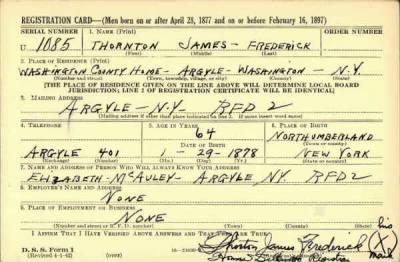 REGISTRATION CARD—(Men born on or after April 28, 1877 and on or before February 16, 1897)
SERIAL NUMBER 1. NAME (Print) ORDER NUMBER
U 1085 THORNTON JAMES - FREDERICK
(Last) (First) (Middle)
2. PLACE OF RESIDENCE (Print)
WASHINGTON COUNTY HOME - ARGYLE - WASHINGTON - N.Y.
(Number and street) (Town, township, village, or city) (County) (State)
[THE PLACE OF RESIDENCE GIVEN ON THE LINE ABOVE WILL DETERMINE LOCAL BOARD
JURISDICTION; LINE 2 OF REGISTRATION CERTIFICATE WILL BE IDENTICAL]
3. MAILING ADDRESS
ARGYLE - N.Y. RFD 2
[Mailing address if other than place indicated on line 2. If same insert word same]
4. TELEPHONE 5. AGE IN YEARS 6. PLACE OF BIRTH
64 NORTHUMBERLAND
DATE OF BIRTH (Town or county)
ARGYLE 401 1 - 29 - 1878 NEW YORK
(Exchange) (Number) (Mo.) (Day) (Yr.) (State or country)
7. NAME AND ADDRESS OF PERSON WHO WILL ALWAYS KNOW YOUR ADDRESS
ELIZABETH - MCAULEY - ARGYLE N.Y. RFD 2
8. EMPLOYER'S NAME AND ADDRESS
NONE
9. PLACE OF EMPLOYMENT OR BUSINESS
NONE
(Number and street or R. F. D. number) (Town) (County) (State)
I AFFIRM THAT I HAVE VERIFIED ABOVE ANSWERS AND THAT THEY ARE TRUE.
D. S. S. Form 1
(Revised 4-1-42) (over)
James Frederick (X) his mark
Registrar